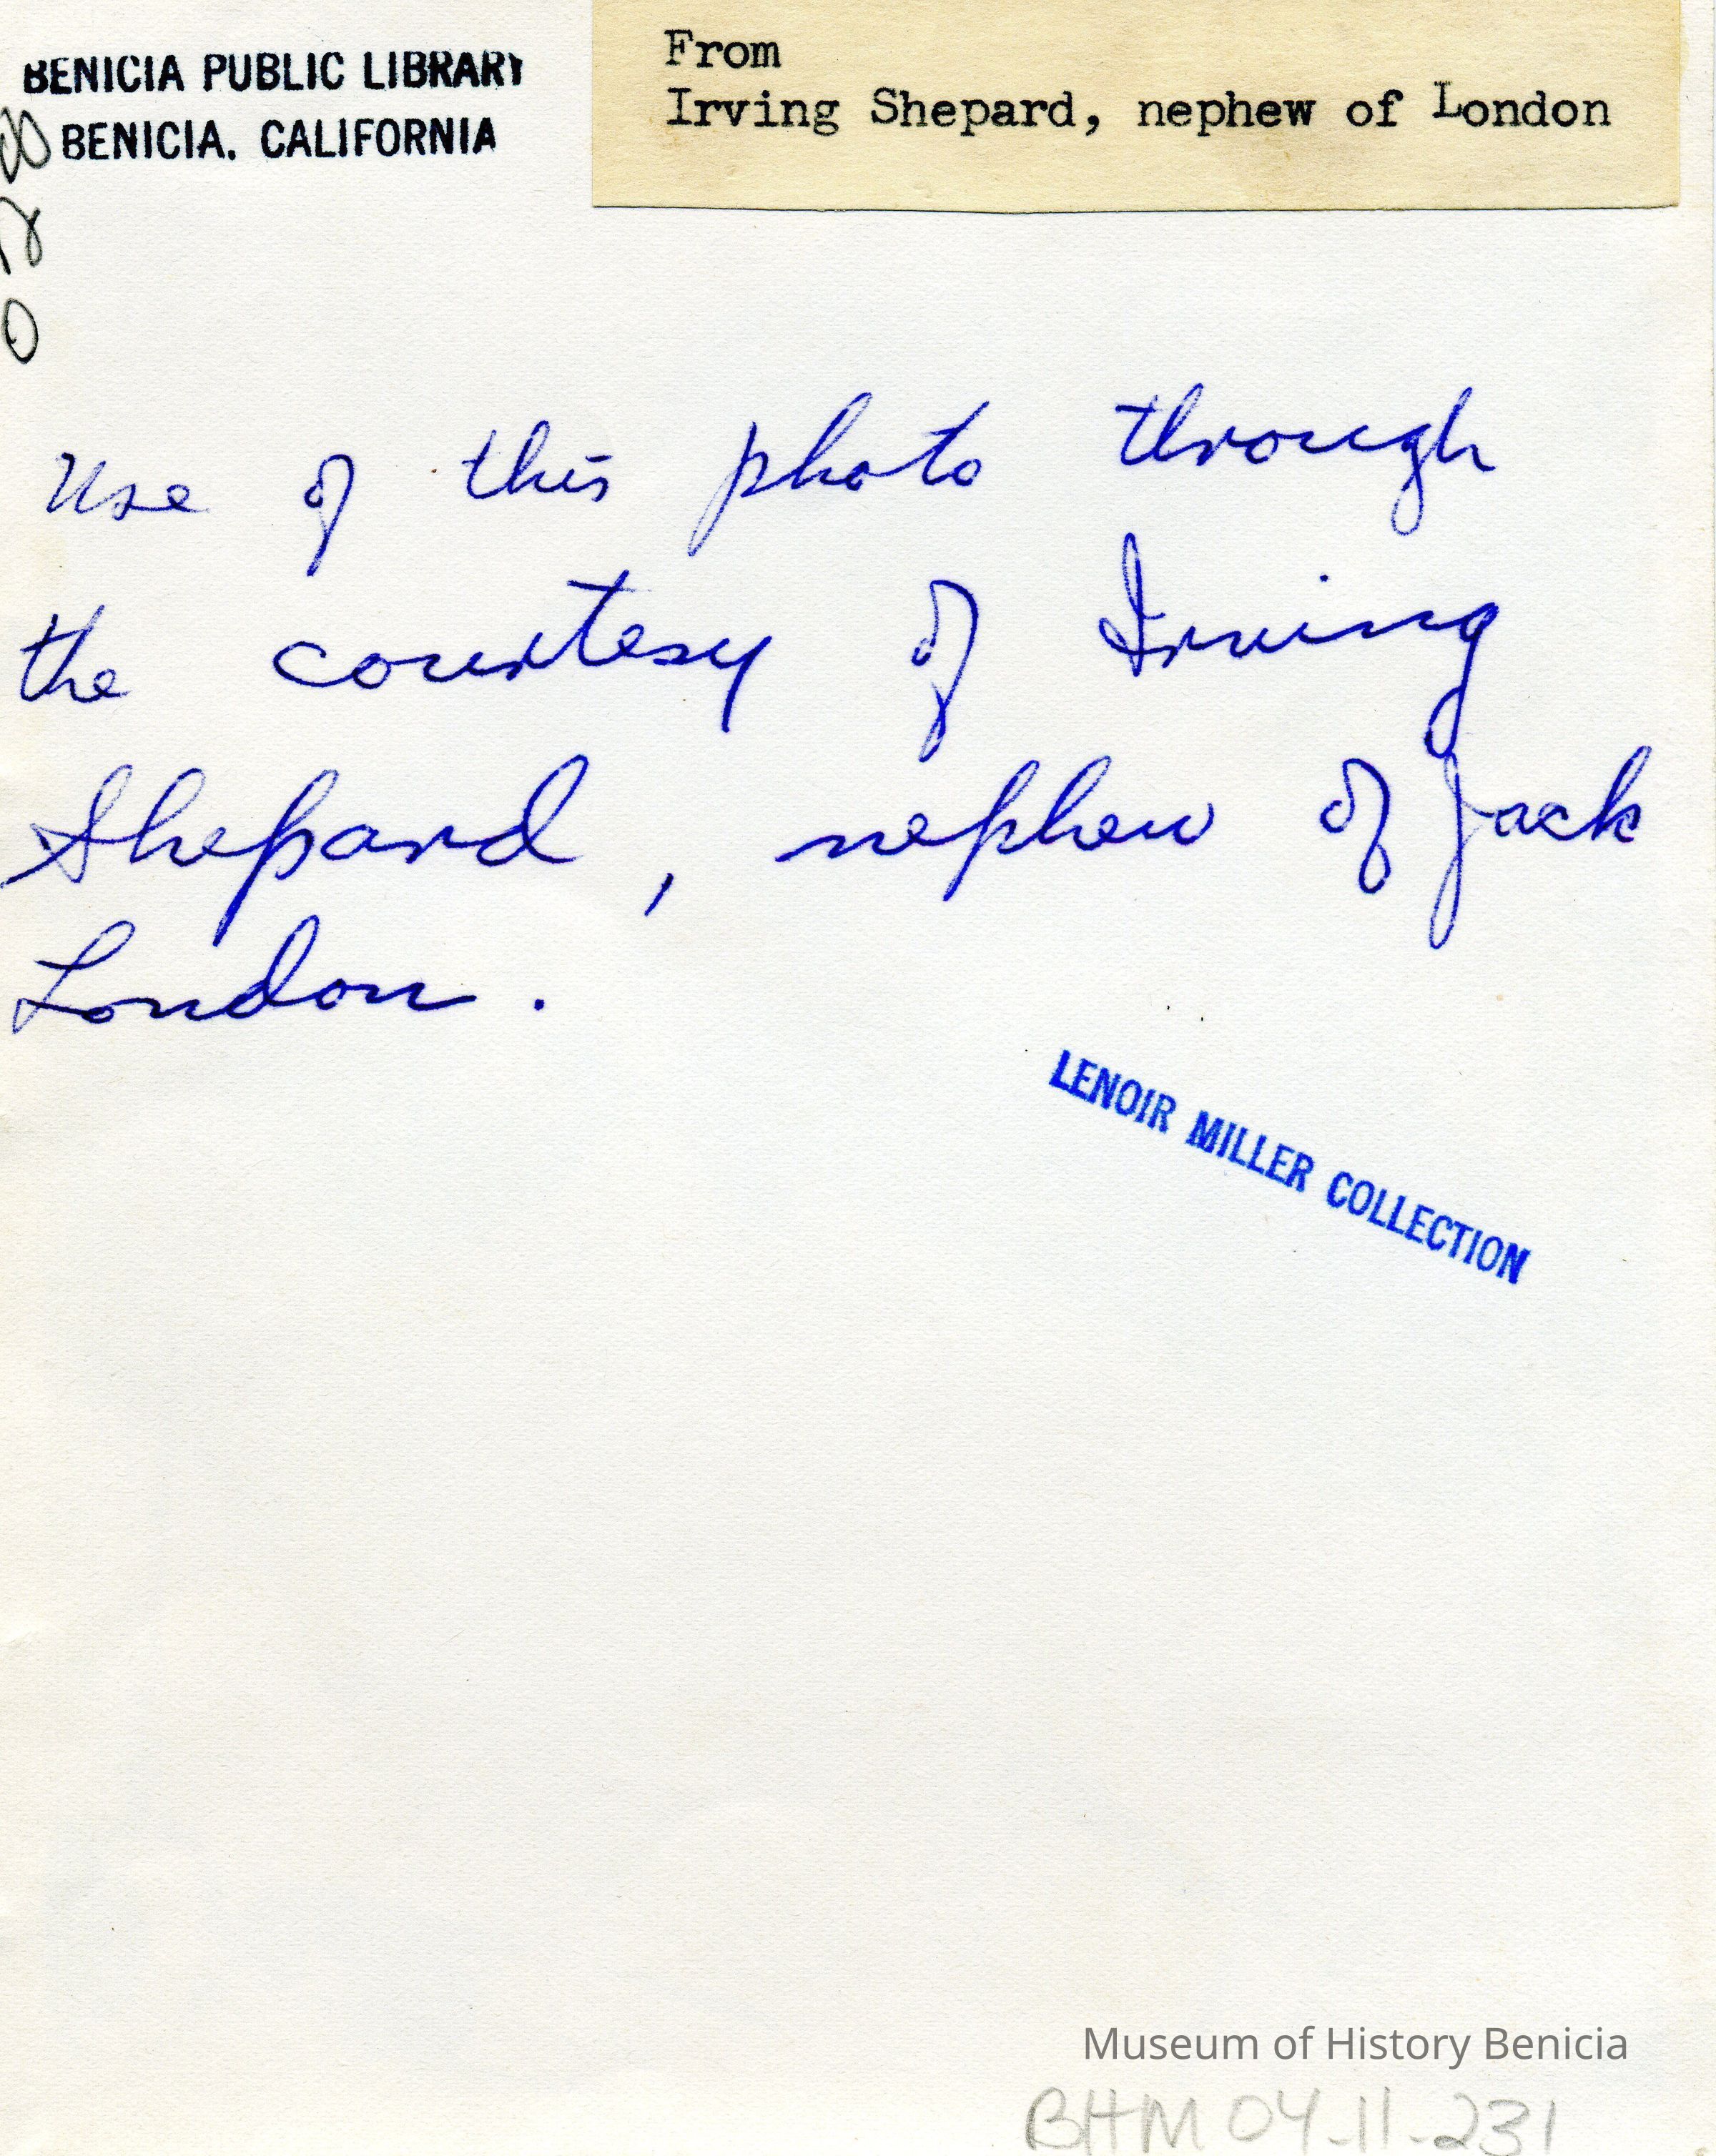 BENICIA PUBLIC LIBRARY
BENICIA, CALIFORNIA
From
Irving Shepard, nephew of London
Use of this photo through
the courtesy of Irving
Shepard, nephew of Jack
London.
LENOIR MILLER COLLECTION
Museum of History Benicia
BHM 04-11-231